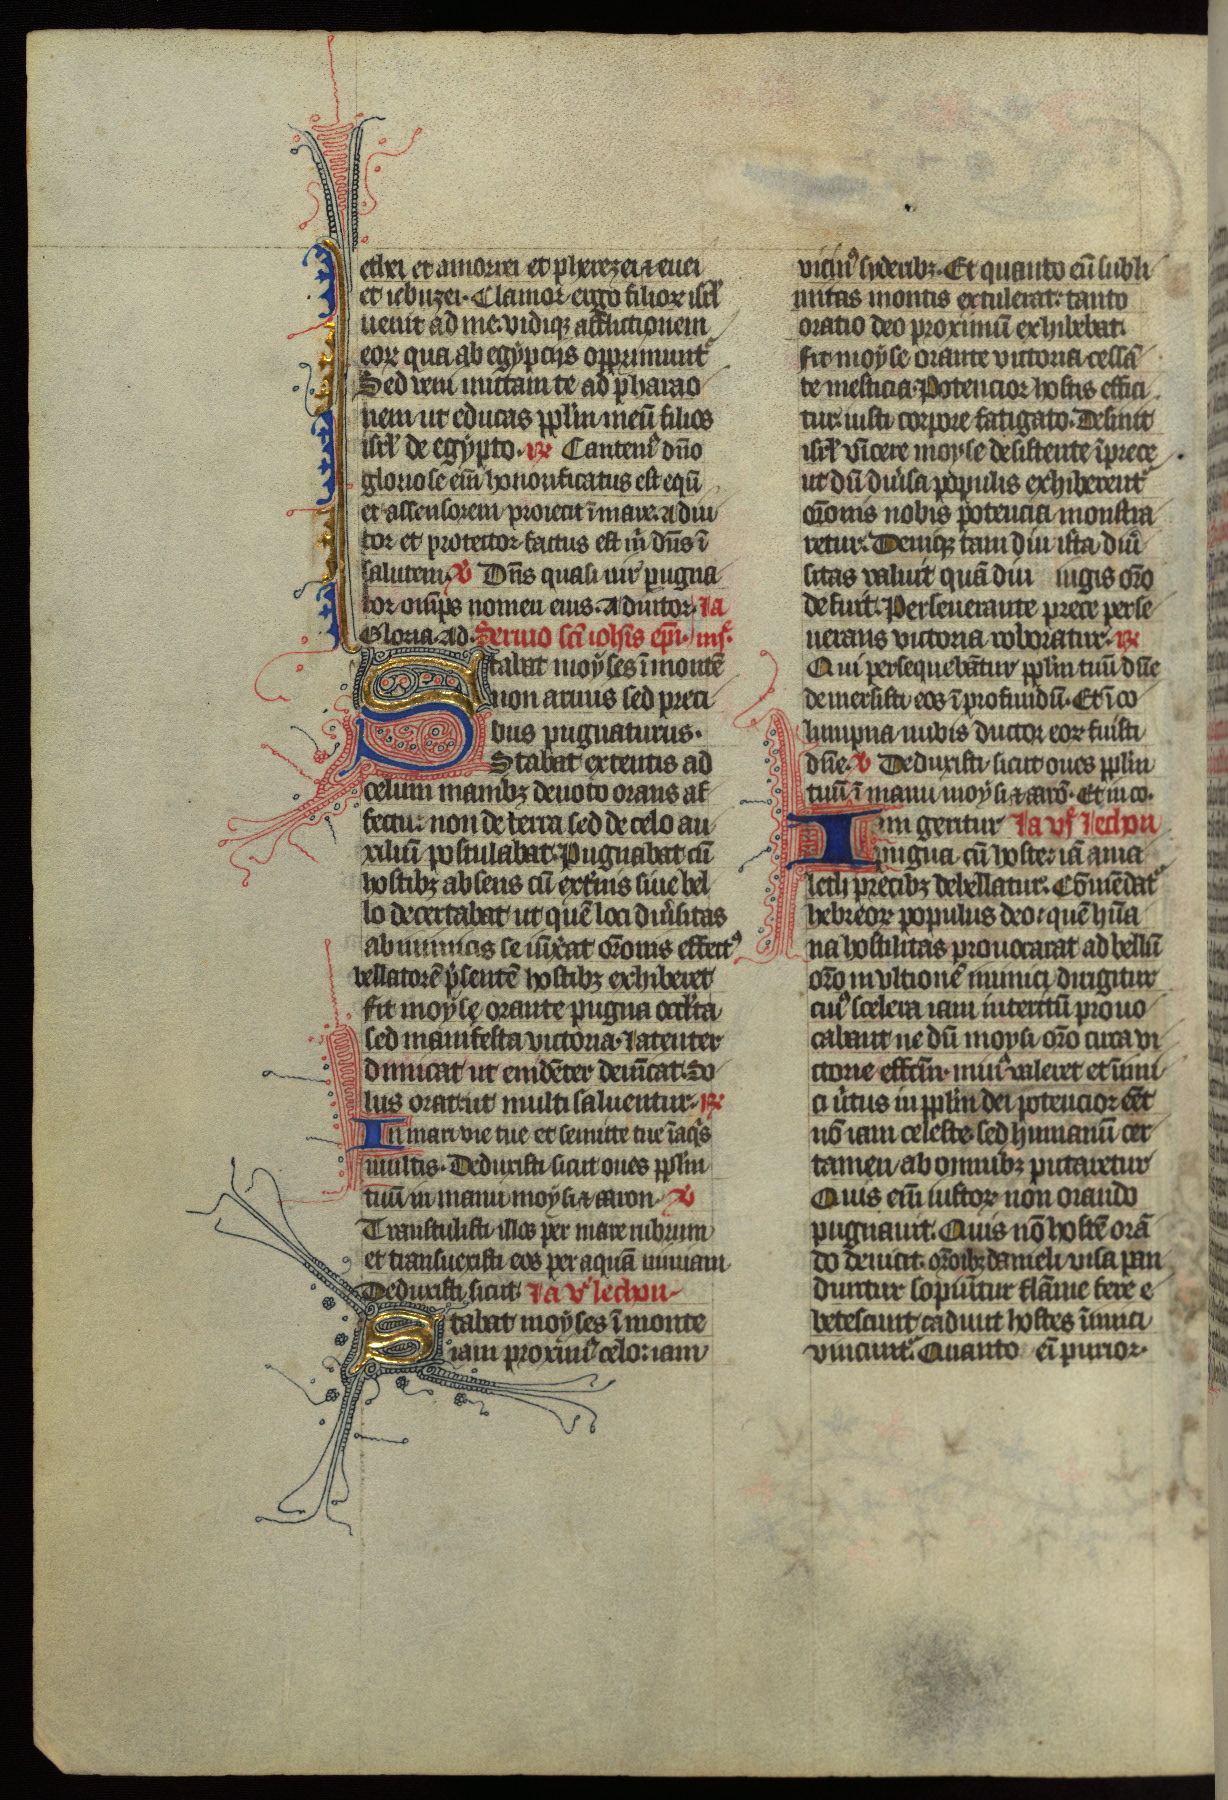 ethei et amorrei et pherezei ⁊ euei
et iebuzei. Clamor ergo filioꝝ isrl̄
uenit ad me. vidiqꝫ afflictionem
eoꝝ qua ab egypciis opprimunt᷑
Sed veni mittam te ad pharao
nem ut educas pplm̄ meū filios
isrl̄ de egypto. ꝶ Cantem᷒ dn̄o
gloriose em̄ honorificatus est equū
et assensorem proiecit ī mare. adiu
tor et protector factus est m̄ dn̄s ī
salutem. ꝟ Dn̄s quasi uir pugna
tor omps nomen eius. Adiutor. Ia
Gloria. Ad. Sermo sc̄i ioh̄is ep̄i.
Stabat moyses ī montē
non armis sed preci
bus pugnaturus.
Stabat extentis ad
celum manibꝫ deuoto orans af
fectu: non de terra sed de celo au
xiliū postulabat. Pugnabat cū
hostibꝫ absens cū ext̄nis siue bel
lo decertabat ut quē loci diūsitas
ab inimicis se iūxat or̄onis effect᷒
bellatorē p̄sentē hostibꝫ exhiberet
fit moyse orante pugna occl̄ta
sed manifesta victoria. Latenter
dimicat ut euidēter deuīcat. So
lus orat: ut multi saluentur. ꝶ
In mari vie tue et semite tue ī aq̄s
multis. Deduxisti sicut oues pplm̄
tuū in manu moysi ⁊ aaron. ꝟ
Transtulisti illos per mare rubrum
et transuexisti eos per aquā nimiam
Deduxisti sicut. Ia vᵃ lechon
Stabat moyses ī monte
iam proxim᷒ celo: iam
vicin᷒ syderibꝫ. Et quanto eū subli
mitas montis extulerat: tanto
oratio deo proximū exhibebat.
fit moyse orante victoria cessā
te mesticia. Potencior hostis effici
tur: iusti corpore fatigato. Desinit
isrl̄ vīcere moyse desistente ī prece
ut dū diūsa populis exhiberent᷑
or̄onis nobis potencia monstra
retur. Deniqꝫ tam diu ista diū
sitas valuit quā diu iugis or̄o
defuit. Perseuerante prece perse
uerans victoria roboratur. ꝶ
Qui persequebāntur pplm̄ tuū dn̄e
demersisti eos ī profundū. Et ī co
lumpna nubis ductor eoꝝ fuisti
dn̄e. ꝟ Deduxisti sicut oues pplm̄
tuū ī manu moysi ⁊ aarō. Et in co.
Im geritur Ia vᵃ lechon
pugna cū hoste: iā ama
lech precibꝫ debellatur. Cōmēdat᷑
hebreoꝝ populus deo: quē hūa
na hostilitas prouocarat ad bellū
or̄o in vltionē inimici dirigitur
cui᷒ scelera iam interitū prouo
cabant ne dū moysi or̄o circa vi
ctorie effc̄m minᷣ valeret et inimi
ci ūtus in pplm̄ dei potencior eēt
nō iam celeste sed humanū cer
tamen ab omnibꝫ putaretur
Quis em̄ iustoꝝ non orando
pugnauit. Quis nō hostē orā
do deuicit. or̄oibꝫ danieli visa pan
duntur sopiūtur flāme fere e
betescunt caduut hostes inimici
vincunt᷑. Quanto em̄ purior